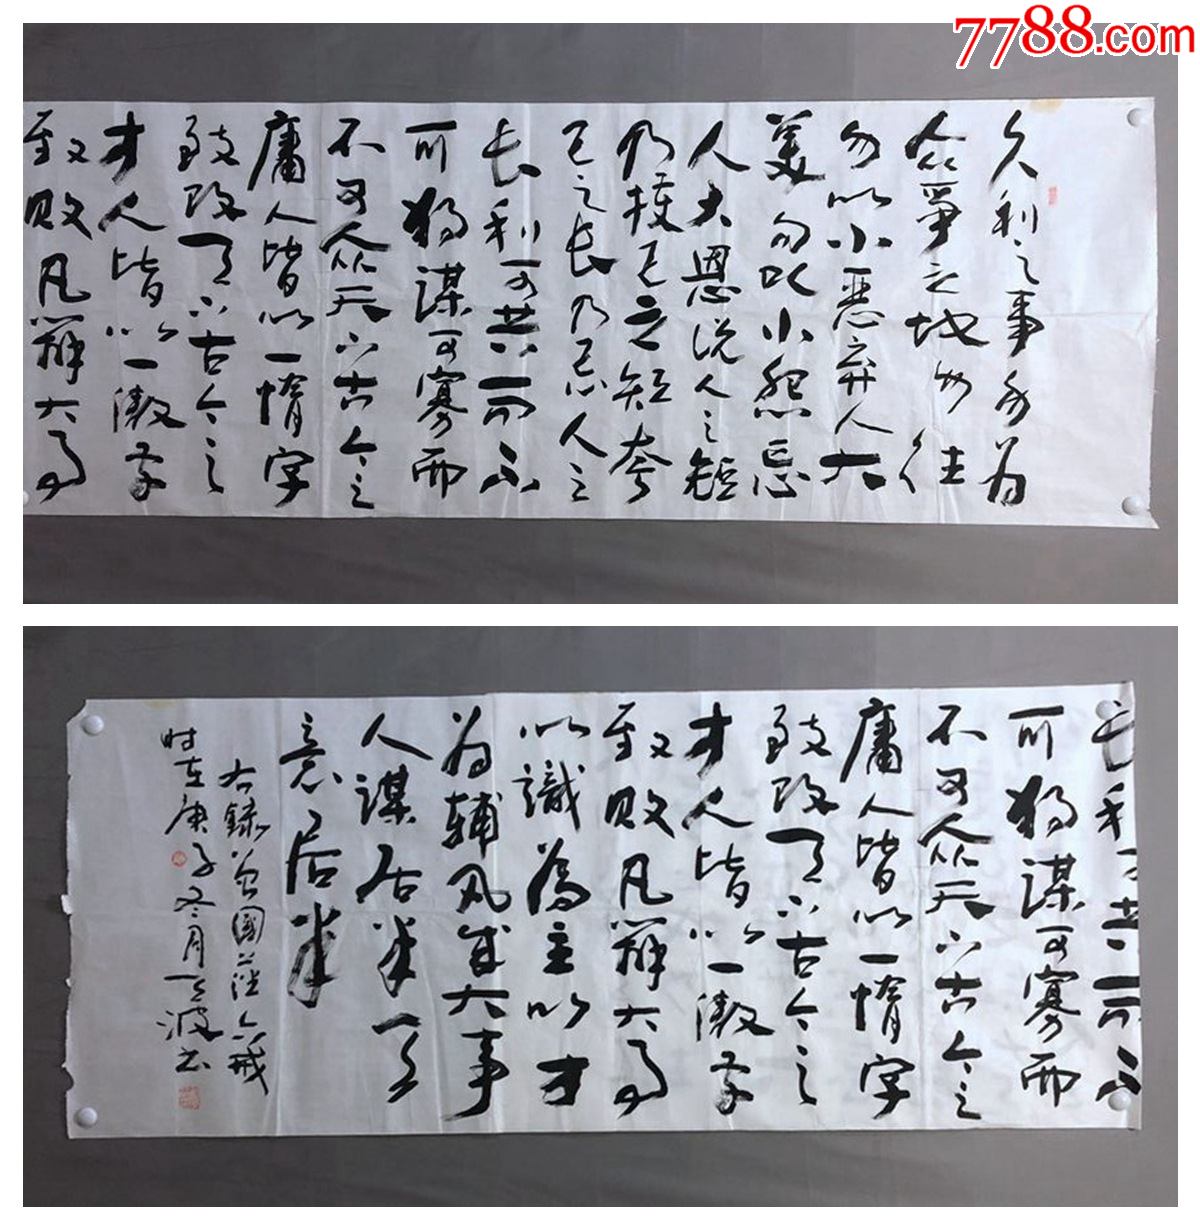 7788.com
久利之事勿为
众爭之地勿往
勿以小恶弃人大
美勿以小怨忘
人大恩说人之短
乃護己之短夸
己之长乃忌人之
长利可共而不
可独谋可寡而
不可众天下古今之
庸人皆以一惰字
致败天下古今之
才人皆以一傲字
致败凡辦大事
长利可共而不
可独谋可寡而
不可众天下古今之
庸人皆以一惰字
致败天下古今之
才人皆以一傲字
致败凡辦大事
以識為主以才
为輔凡成大事
人谋居半天
意居半
右録曾國藩六戒
时在庚子冬月天波书